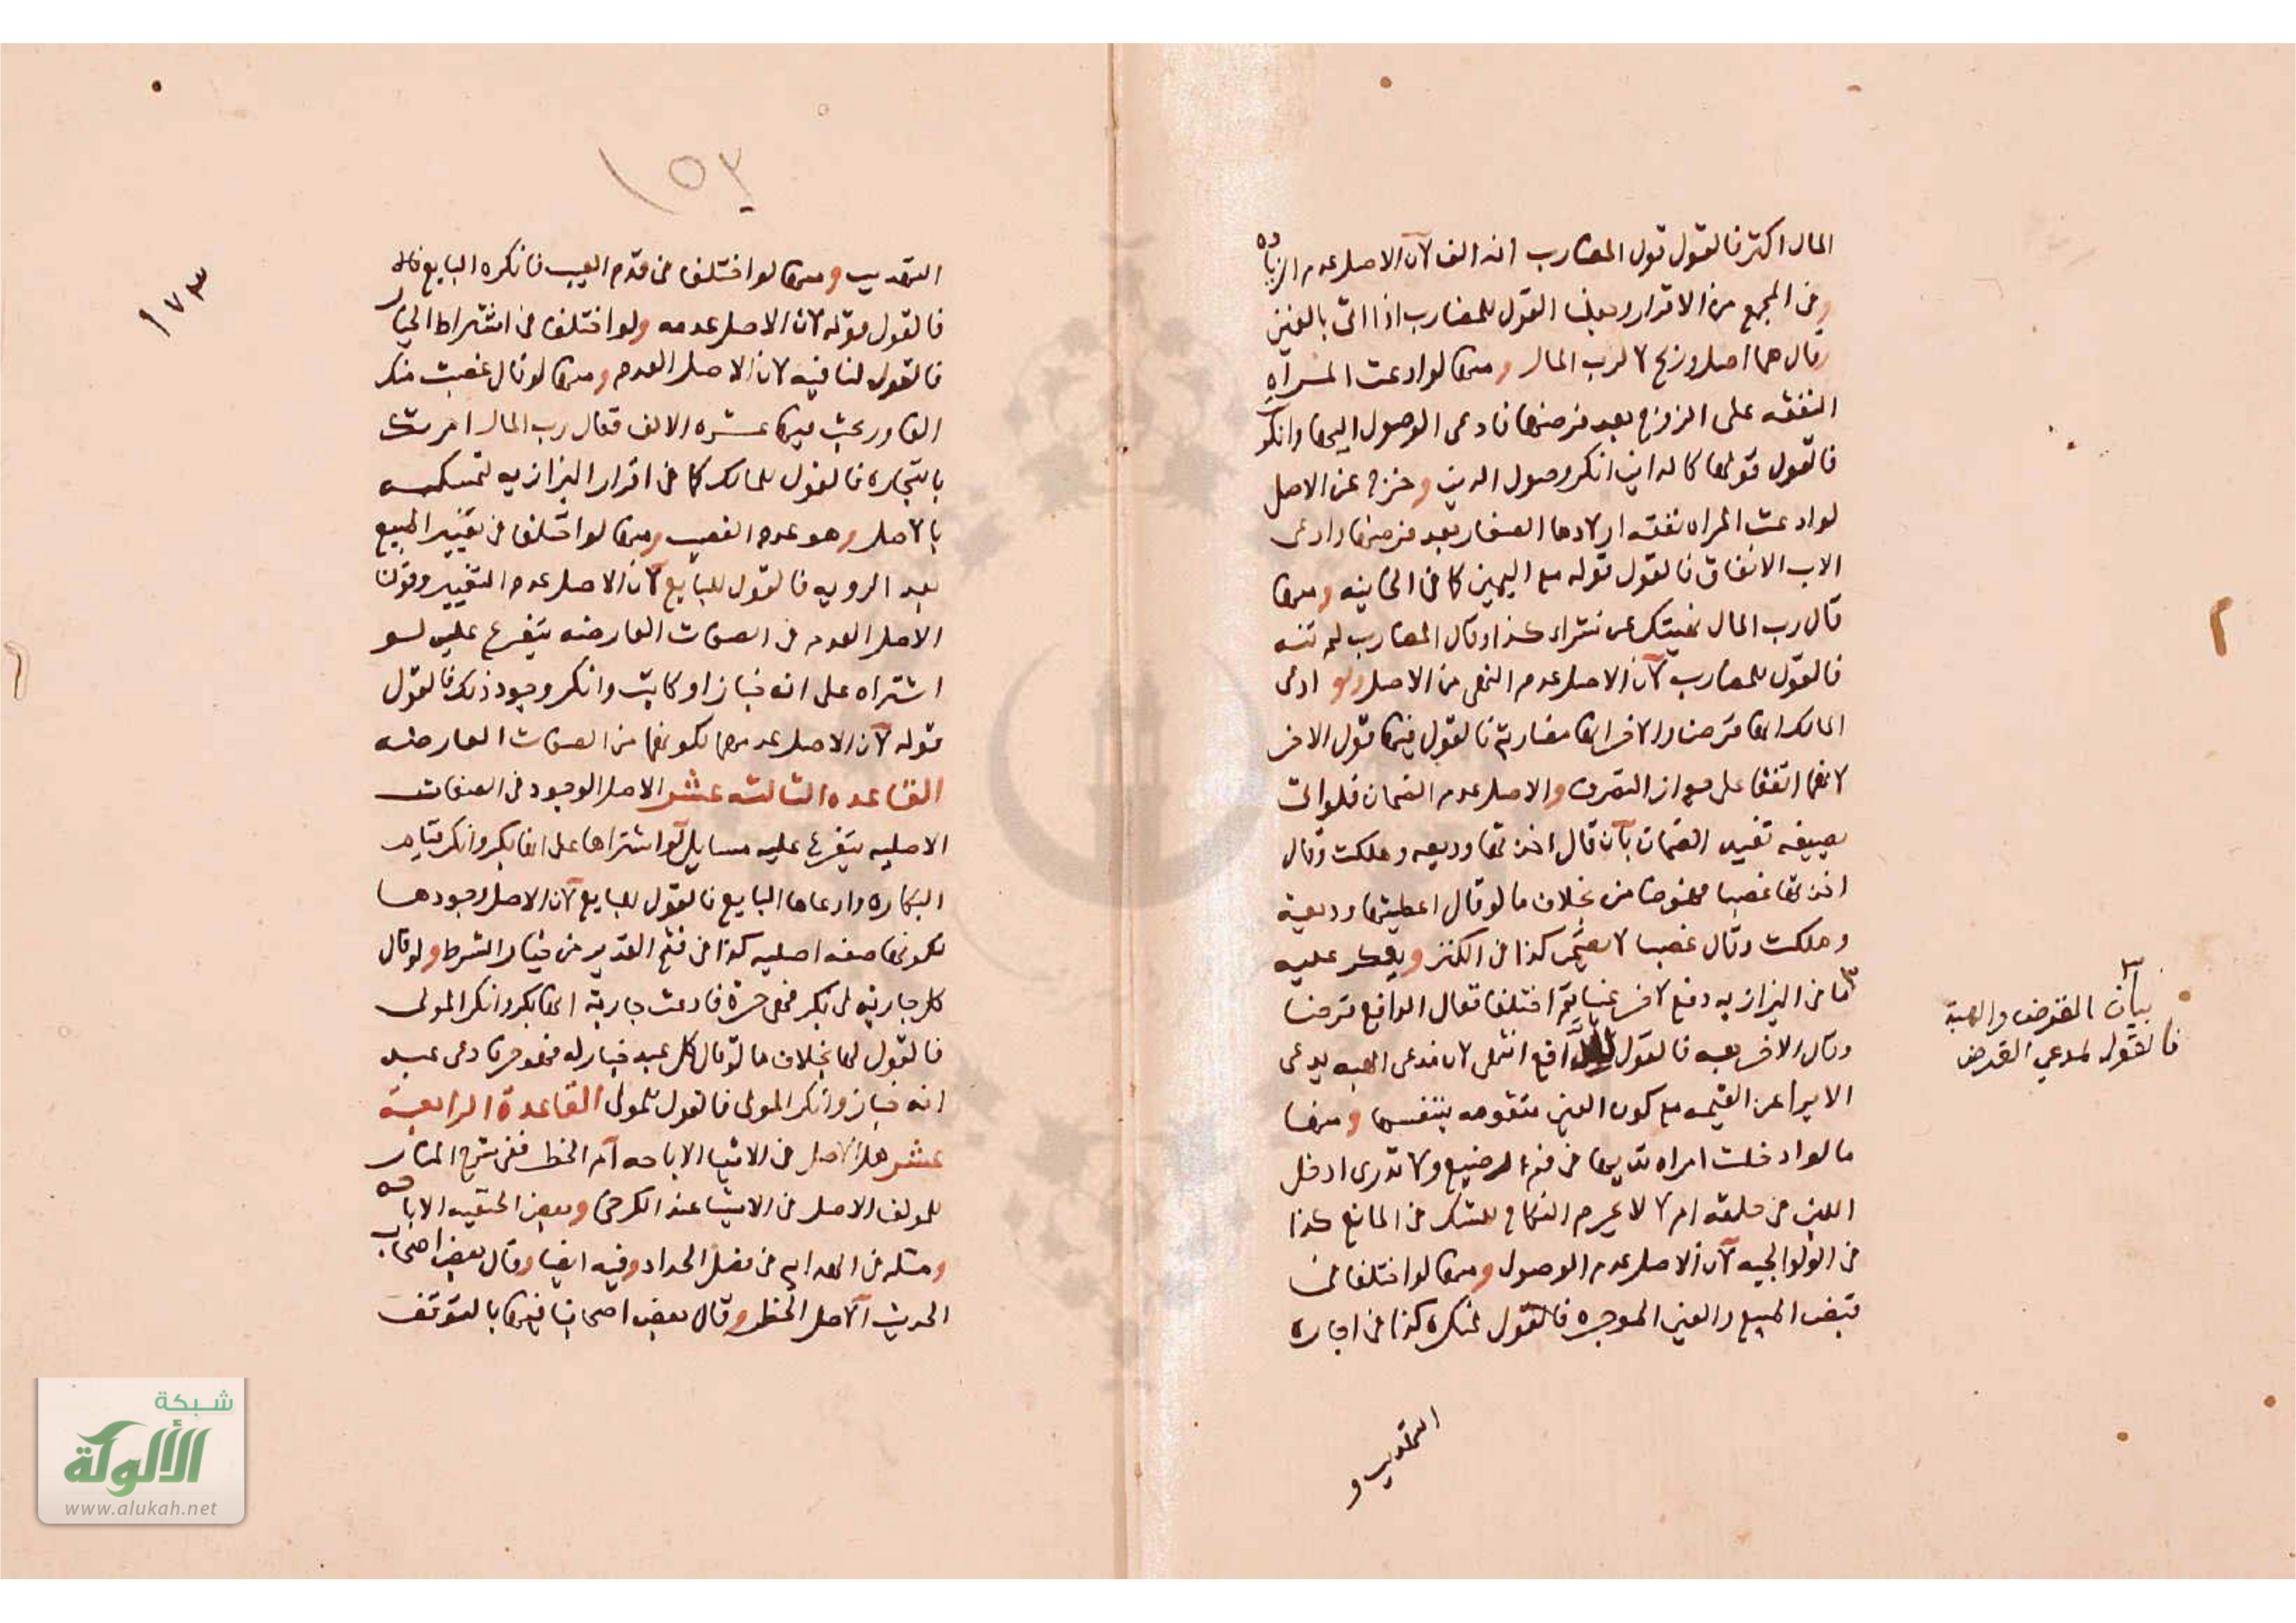 المال اكثر فالقول قول المضارب انه الف لان الاصل عدم الزياده
وفى المجمع من الاقرار وجعلنا القول للمضارب اذا اتى بالفين
وقال هما اصل وربح لا لرب المال ومنها لو ادعت المراه
النفقه على الزوج بعد فرضها فادعى الوصول اليها وانكرت
فالقول قولها كالداين انكر وصول الدين وخرج عن الاصل
لو ادعت المراه نفقه اولادها الصغار بعد فرضها وادعى
الاب الانفاق فالقول قوله مع اليمين كما فى الخانيه ومنها
قال رب المال نهيتك عن شراء كذا وقال المضارب لم تنه
فالقول للمضارب لان الاصل عدم النهى من الاصل ولو ادعى
المالك انها قرضا والاخر انها مضاربة فالقول فيها قول الاخر
لانهما اتفقا على جواز التصرف والاصل عدم الضمان فلو اتى
بصيغه تفيد الضمان بان قال اخذتها وديعه وهلكت وقال
اخذتها غصبا فهو ضامن بخلاف ما لو قال اعطيتها وديعة
وهلكت وقال غصبا لا يضمن كذا فى الكنز ويعكر عليه
ما فى البزازيه دفع لاخر عينا ثم اختلفا فقال الدافع قرضا
وقال الاخر هبه فالقول للدافع انتهى لان مدعى الهبه يدعى
الابرا عن القيمه مع كون العين متقومه بنفسها ومنها
ما لو ادخلت امراه ثديها فى فم الرضيع ولا تدرى ادخل
اللبن فى حلقه ام لا لا يحرم النكاح للشك فى المانع كذا
فى الولوالجيه لان الاصل عدم الوصول ومنها لو اختلفا فى
قبض المبيع والعين الموجره فالقول لمنكره كذا فى اجاره
التهذيب و
٣
بيان القرض والهبة
فالقول لمدعي القرض
١٥٢
١٧٣
التهذيب ومنها لو اختلفا فى قدم العيب فانكره البايع
فالقول قوله لان الاصل عدمه ولو اختلفا فى اشتراط الخيار
فالقول لنافيه لان الاصل العدم ومنها لو قال غصبت منك
الفا وربحت فيها عشره الالف فقال رب المال امرتك
بالتجاره فالقول للمالك كما فى اقرار البزازيه لتمسكه
بالاصل وهو عدم الغصب ومنها لو اختلفا فى تغيير المبيع
بعد الرويه فالقول للبايع لان الاصل عدم التغيير وقولنا
الاصل العدم فى الصفات العارضه يتفرع عليه لو
اشتراه على انه خباز او كاتب وانكر وجود ذلك فالقول
قوله لان الاصل عدمهما لكونهما من الصفات العارضه
القاعده الثالثه عشر الاصل الوجود فى الصفات
الاصليه يتفرع عليه مسايل لو اشتراها على انها بكر وانكر قيام
البكاره وادعاها البايع فالقول للبايع لان الاصل وجودها
لكونها صفه اصليه كذا فى فتح القدير من خيار الشرط ولو قال
كل جارية لى بكر فهى حرة فادعت جارية انها بكر وانكر المولى
فالقول لها بخلاف ما لو قال كل عبد خباز له فهو حر فادعى عبد
انه خباز وانكر المولى فالقول للمولى القاعدة الرابعة
عشر هل الاصل فى الاشيا الاباحه ام الحظر ففى شرح المنار
للمولف الاصل فى الاشيا عند الكرخى وبعض الحنفيه الاباحه
ومثله فى الهدايه فى فصل الحداد وفيه ايضا وقال بعض اصحاب
الحديث الاصل الحظر وقال بعض اصحابنا فيها بالتوقف
شبكة
الألوكة
www.alukah.net